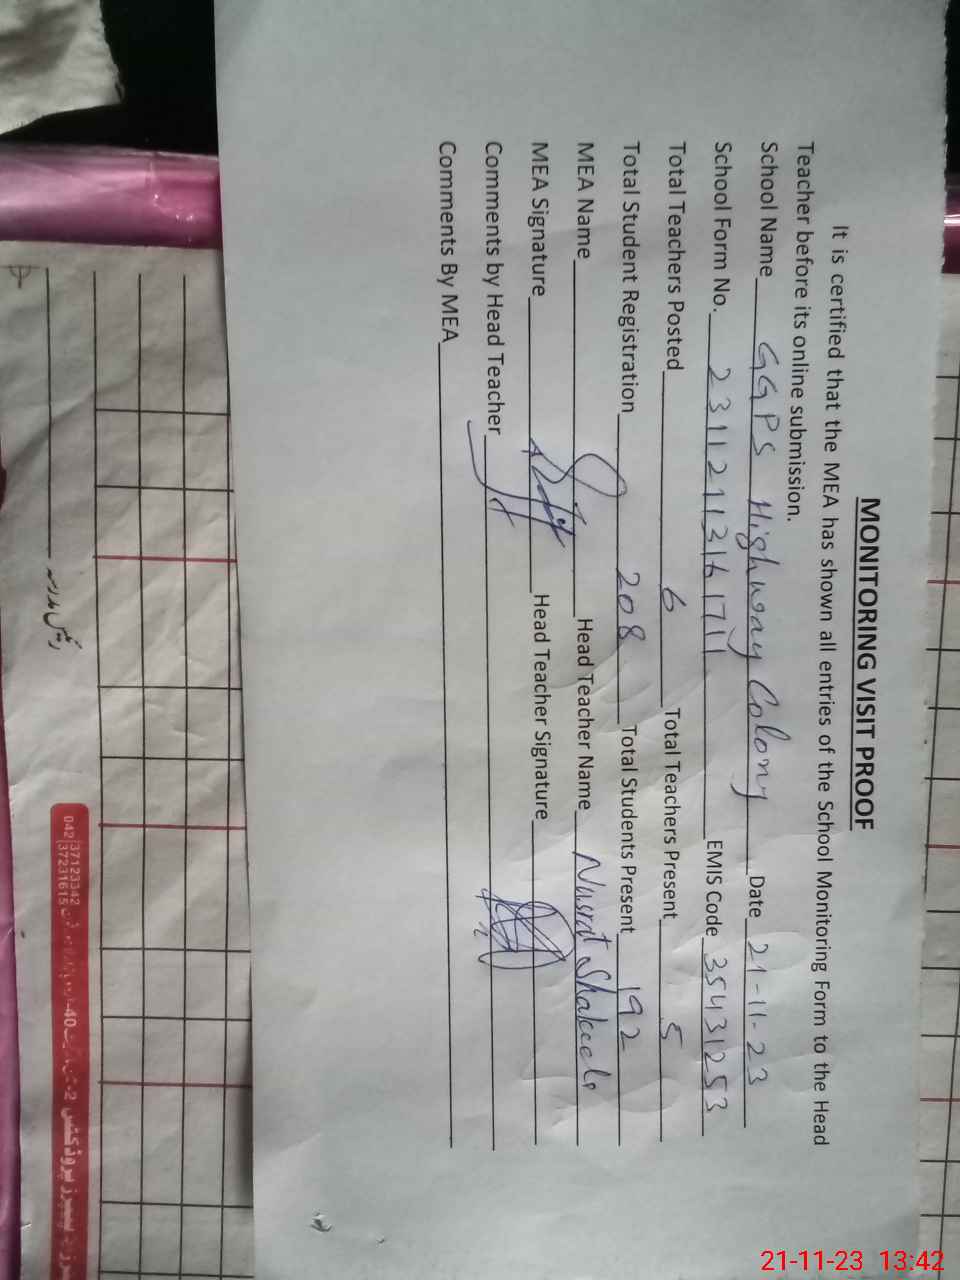 MONITORING VISIT PROOF
It is certified that the MEA has shown all entries of the School Monitoring Form to the Head
Teacher before its online submission.
School Name GGPS Highway Colony Date 21-11-23
School Form No. EMIS Code 35431253
Total Teachers Posted 6 Total Teachers Present 5
Total Student Registration 208 Total Students Present 192
MEA Name Head Teacher Name Nusrat Shakeel
MEA Signature Head Teacher Signature
Comments by Head Teacher
Comments By MEA
042 37123342
37231615
21-11-23 13:42